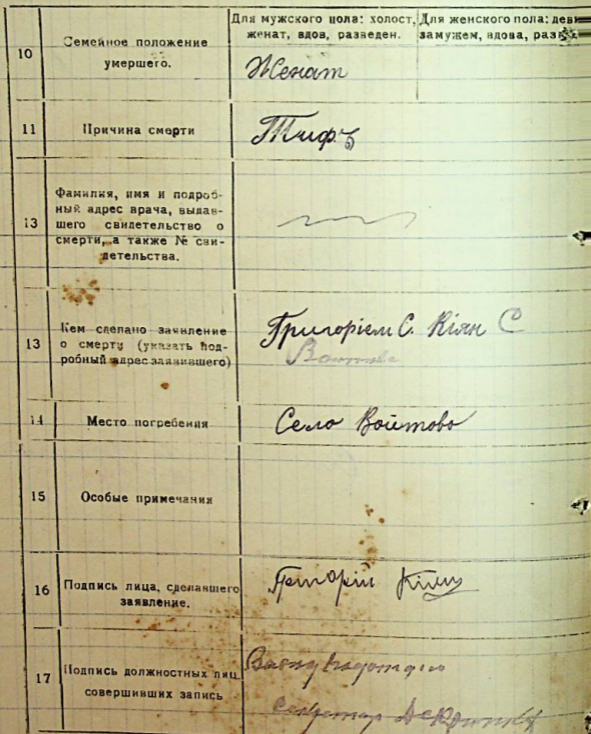 Для мужского пола: холост, женат, вдов, разведен.
Для женского пола: замужем, вдова,
10
Семейное положение умершего.
Женат
11
Причина смерти
Тифъ
13
Фамилия, имя и подроб-
ный адрес врача, выдав-
шего свидетельство о
смерти, а также № сви-
детельства.
13
Кем сделано заявление
о смерти (указать под-
робный адрес заявившего)
Григоріем С. Кіян С
14
Место погребения
Село Войтово
15
Особые примечания
16
Подпись лица, сделавшего
заявление.
Григорій Кіян
17
Подпись должностных лиц,
совершивших запись
Секретар